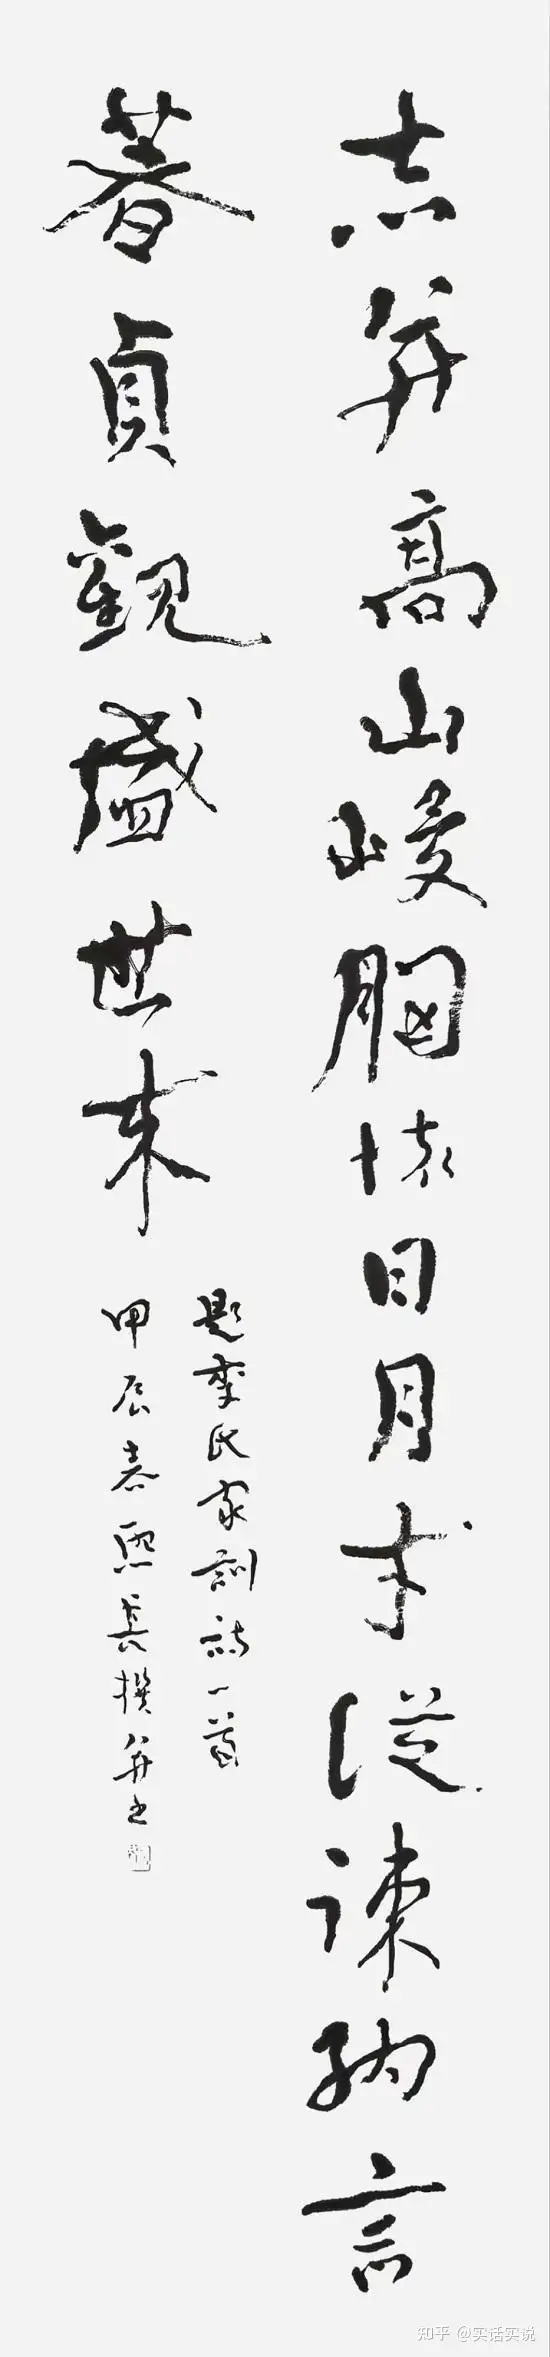 志并高山峻胸怀日月才從諫納言
著貞觀盛世来
題李氏家訓詩一首
甲辰春熙長撰并书
知乎 @实话实说